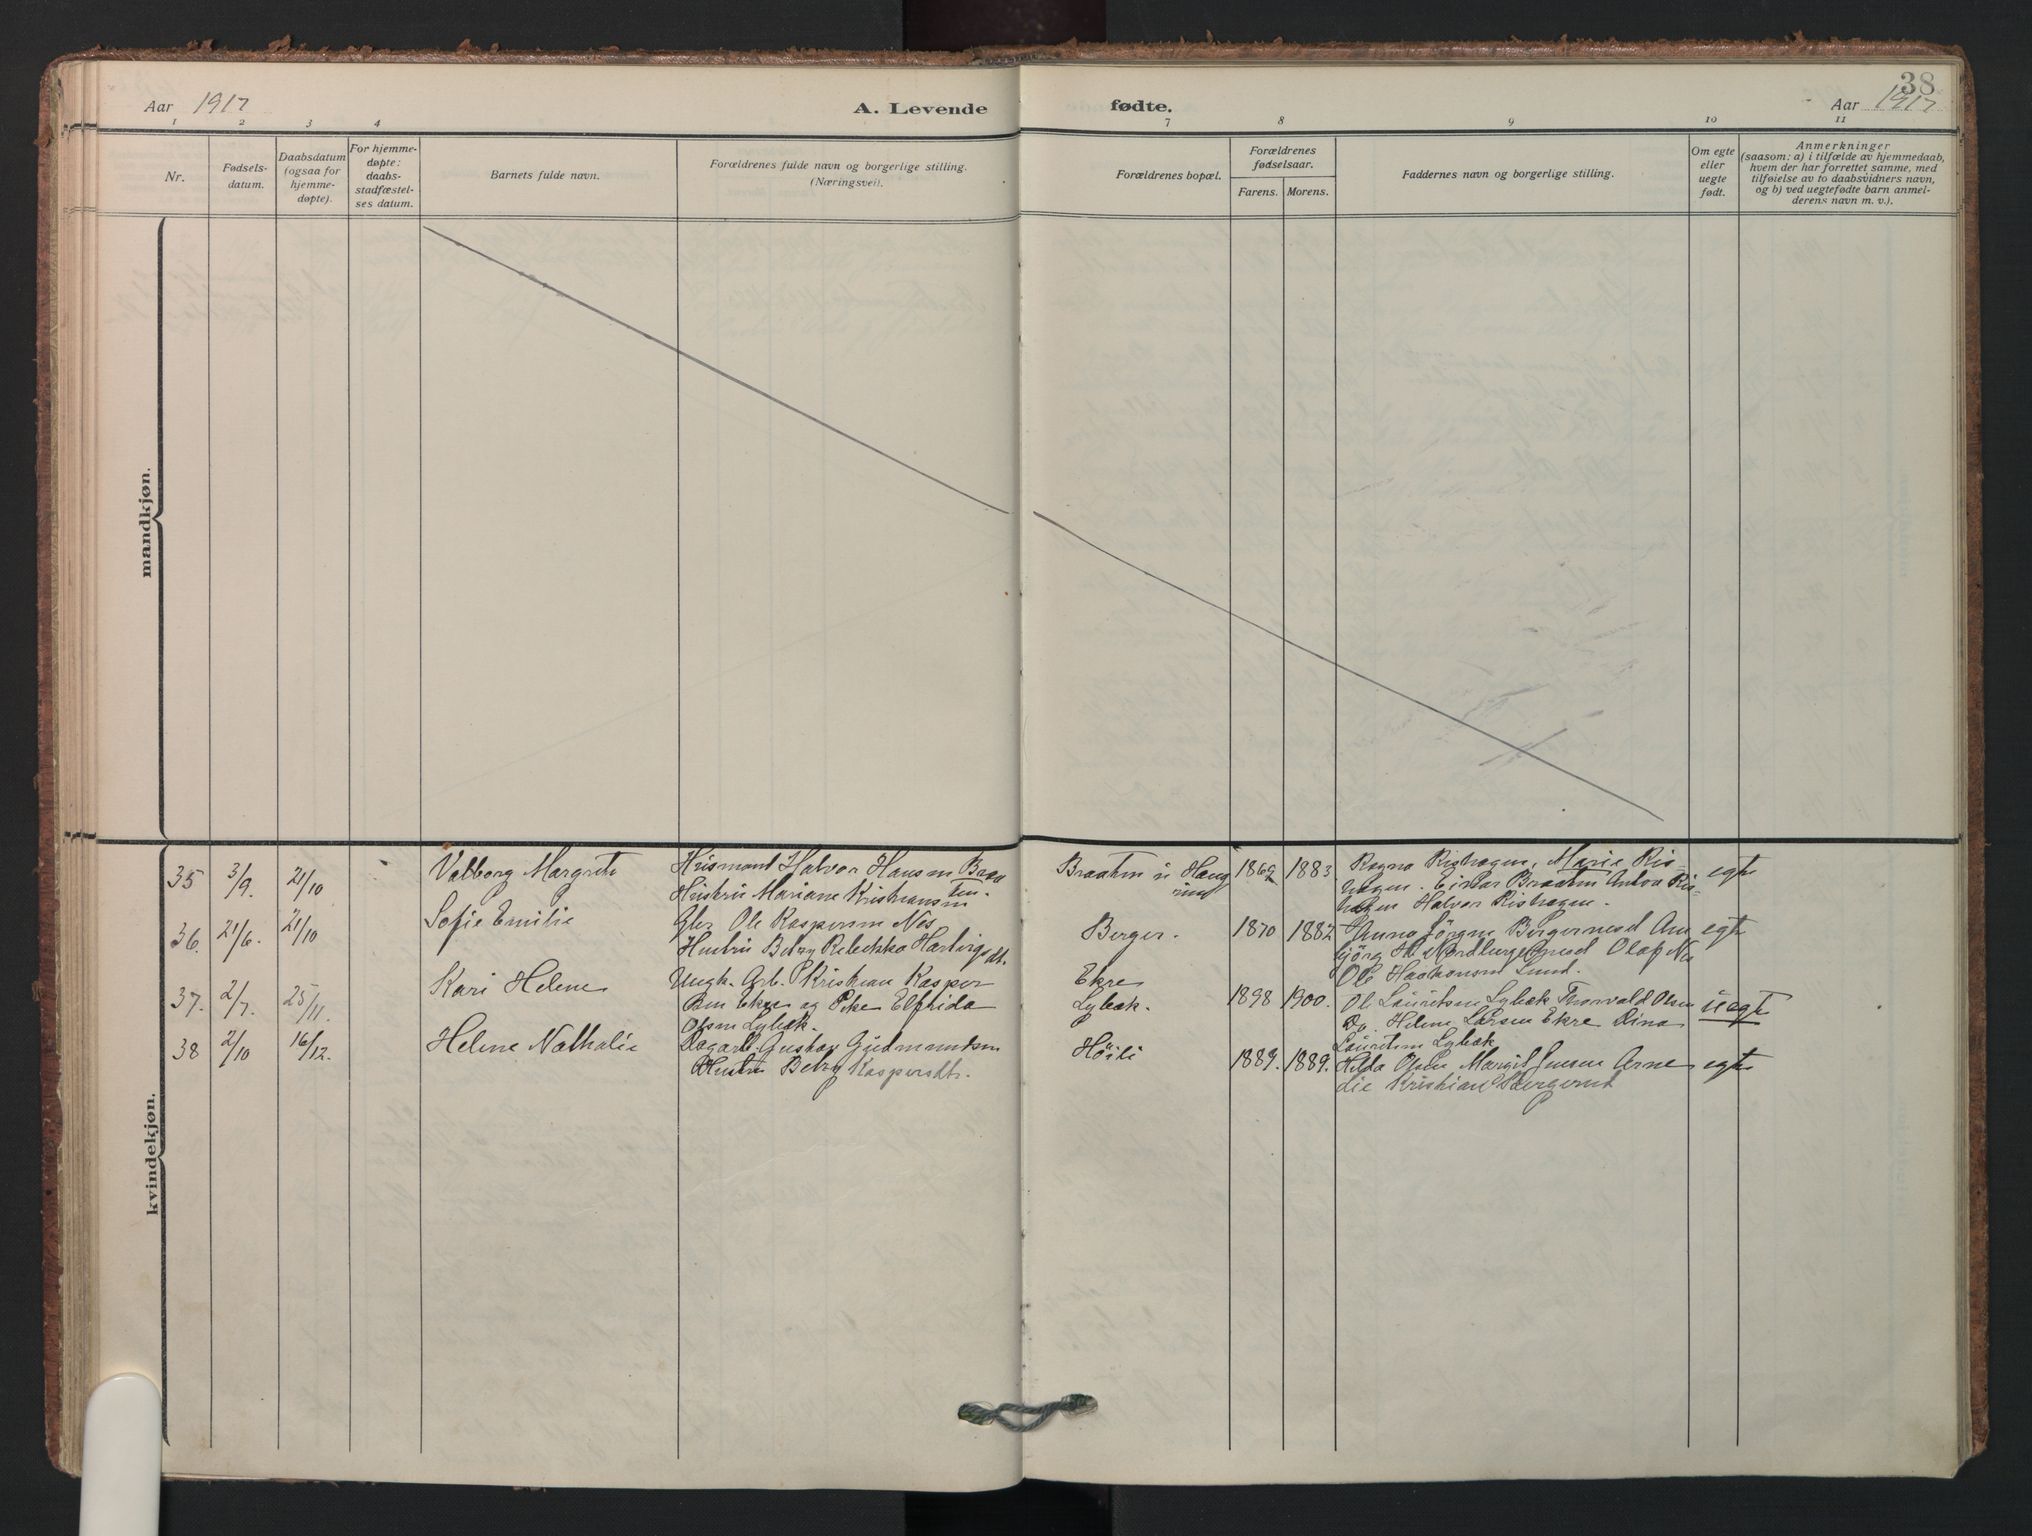 38
Aar 1917
A. Levende fødte.
Aar 1917
1 2 3 4 7 8 9 10 11
Nr.
Fødsels-
datum.
Daabsdatum
(ogsaa for
hjemme-
døpte).
For hjemme-
døpte:
daabs-
stadfæstel-
ses datum.
Barnets fulde navn.
Forældrenes fulde navn og borgerlige stilling.
(Næringsvei).
Forældrenes bopæl.
Forældrenes
fødselsaar.
Farens. Morens.
Faddernes navn og borgerlige stilling.
Om egte
eller
uegte
født.
Anmerkninger
(saasom: a) i tilfælde av hjemmedaab,
hvem der har forrettet samme, med
tilføielse av to daabsvidners navn,
og b) ved uegtefødte barn anmel-
derens navn m. v.).
mandkjøn.
kvindekjøn.
35 3/9. 21/10 Valborg Margrete
Husmand Halvor Hansen Braa
ten.
Hustru Mariane Kristiansen
Braaten u Haug
1869 1883
Ragna Rishagen, Marie Ris-
hagen. Einar Braaten Anton Ris-
hagen Halvor Rishagen.
egte
36. 21/6. 21/10 Sofie Emilie
Gbr Ole Kaspersen Næs
Hustru Betzy Rebekka Hartvigsdt.
Berger.
1870 1882
Anna Jørgine Bergerness Am
bjørg Olaf Næs
Ole Haakonsen Lund.
egte
37. 2/7. 25/11. Kari Helene
Ungk. Arb. Kristian Kasper
sen Ekre og Pike Elfrida
Olsen Lybæk.
Ekre
Lybæk.
1898 1900.
Ole Lauritsen Lybæk Thorvald Olsen
Do. Helene Larsen Ekre Dina
Lauritsen Lybæk
uegte
38 2/10 16/12. Helene Nathalie
Dagarb. Gustav Gudmundsen
Hustru Betzy Kaspersdt.
Høili
1889. 1889.
Hilda Olsen Margit Jensen Arne
die Kristian Bergerud
egte